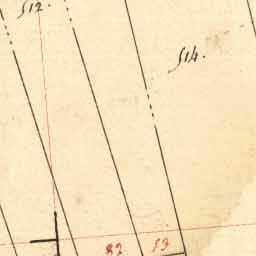 512.
514.
82 53